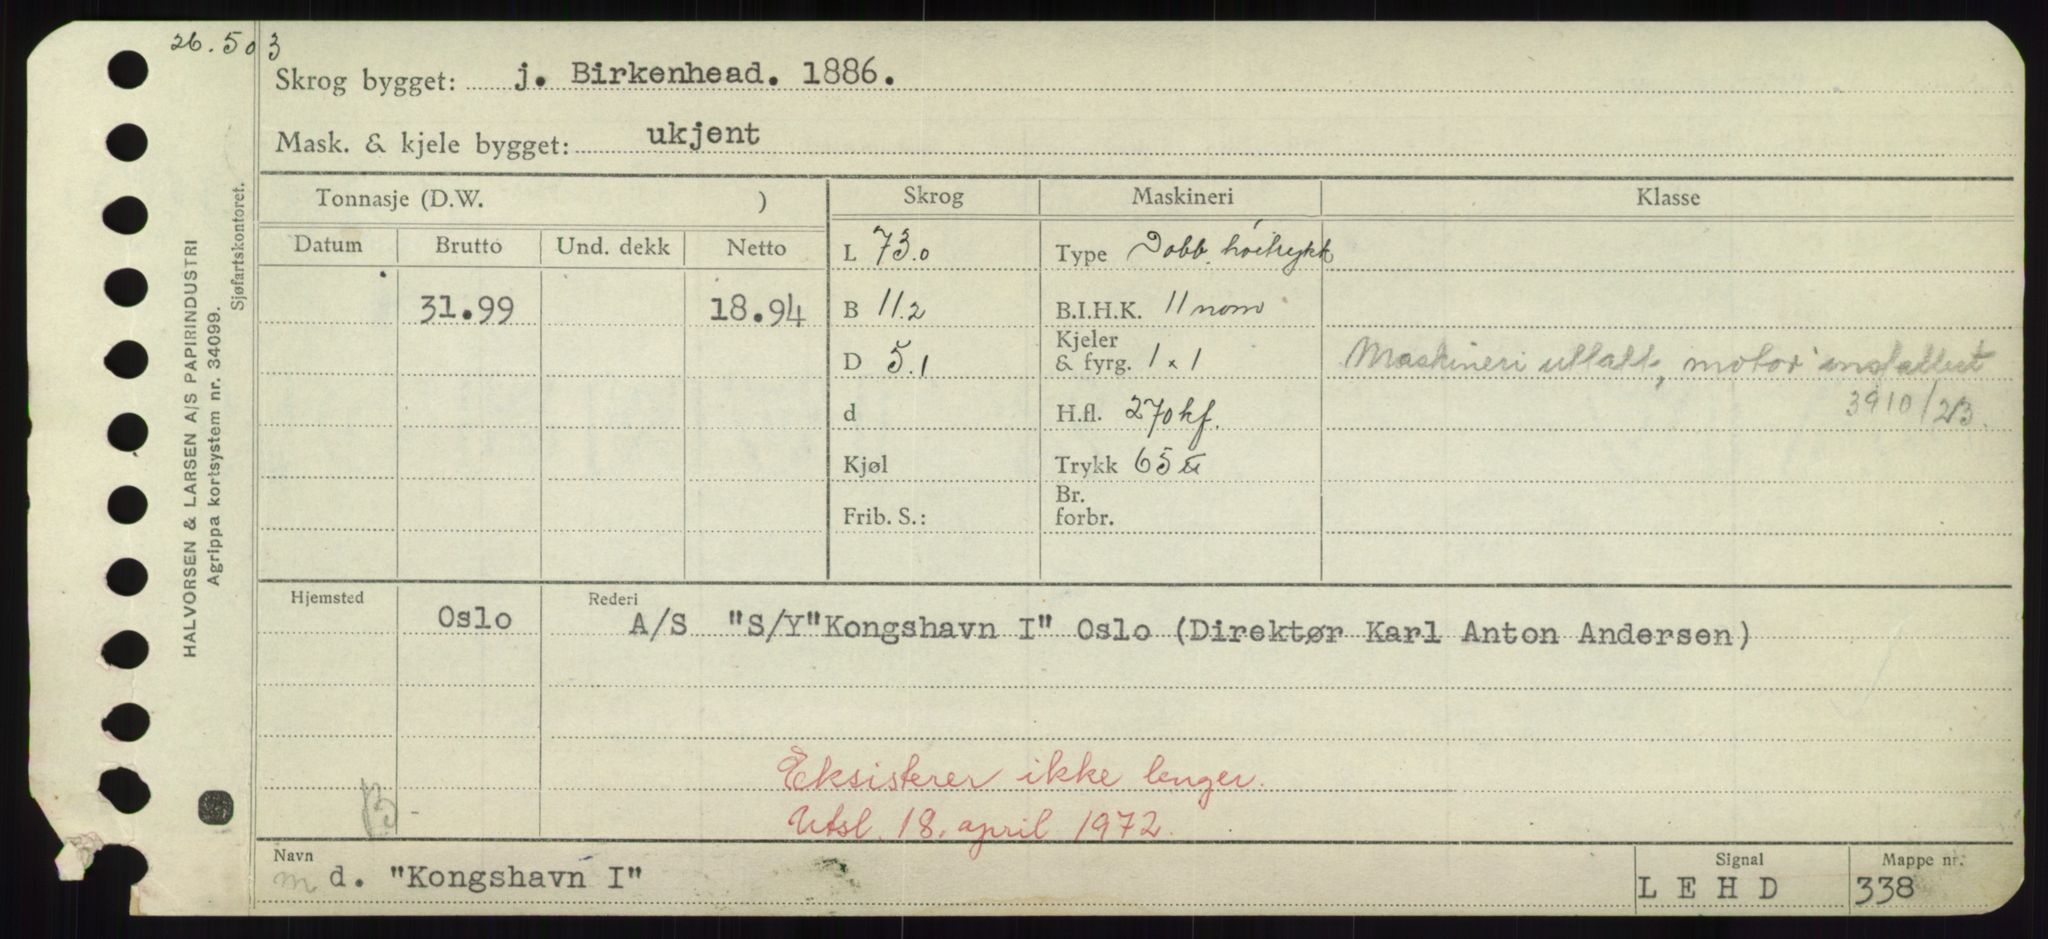 26.503
Skrog bygget: j. Birkenhead. 1886.
Mask. & kjele bygget: ukjent
HALVORSEN & LARSEN A/S PAPIRINDUSTRI
Agrippa kortsystem nr. 34099.
Sjøfartskontoret.
Tonnasje (D.W. ) Skrog Maskineri Klasse
Datum Brutto Und. dekk Netto
L 73.0 Type Dobb. høitrykk
31.99 18.94 B 11.2 B.I.H.K. 11 nom
D 5.1 Kjeler & fyrg. 1 x 1 Maskineri uttatt, motor installert
d H.fl. 270 kf. 3910/23.
Kjøl Trykk 65 ℔
Frib. S.: Br. forbr.
Hjemsted Rederi
Oslo A/S "S/Y"Kongshavn I" Oslo (Direktør Karl Anton Andersen)
Eksisterer ikke lenger.
Utsl. 18. april 1972.
B
Navn Signal Mappe nr.
m d. "Kongshavn I" L E H D 338